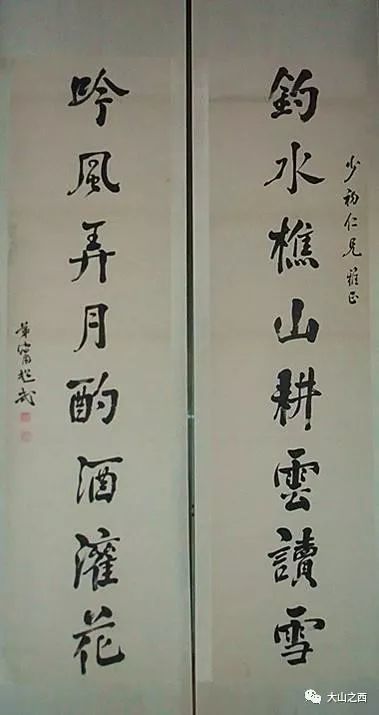 少初仁兄雅正
釣水樵山耕雲讀雪
吟風弄月酌酒灌花
大山之西